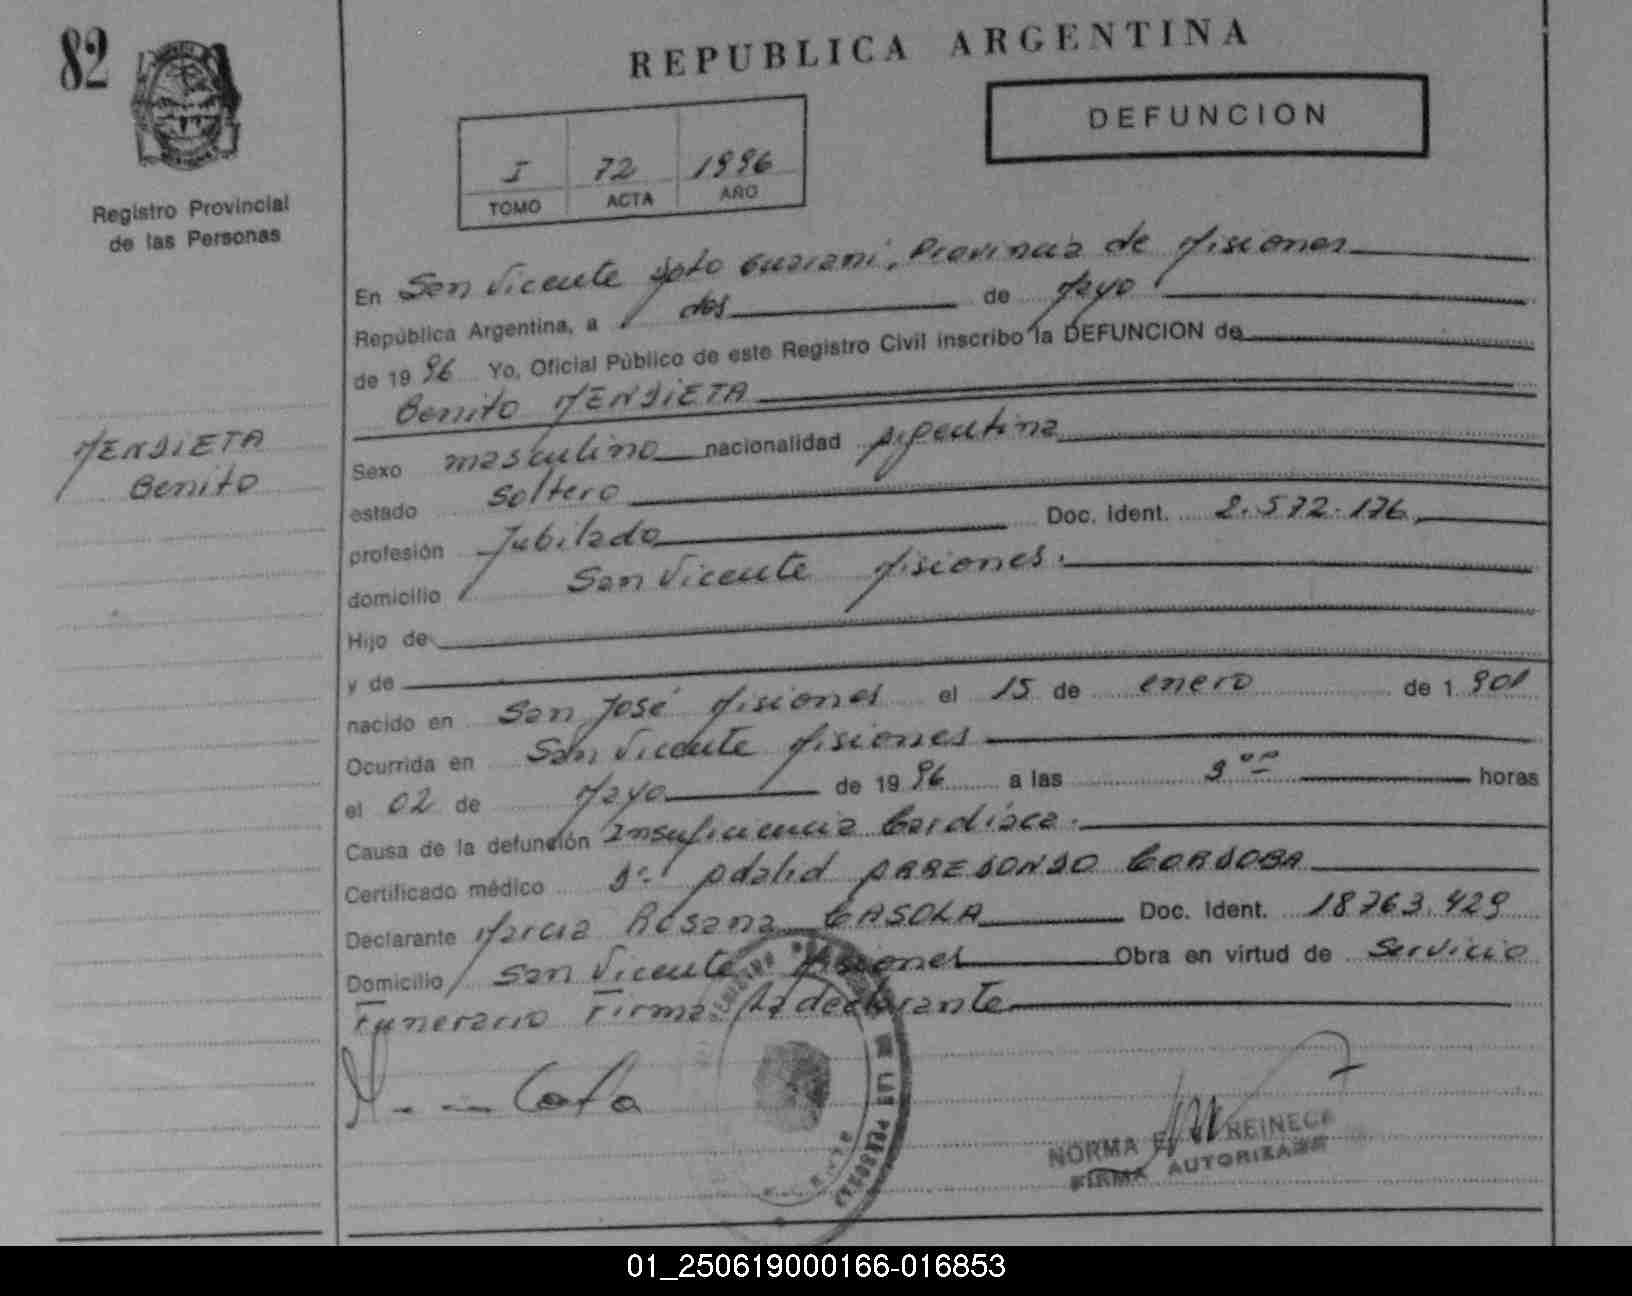 82
REPUBLICA ARGENTINA
DEFUNCION
I 72 1996
TOMO ACTA AÑO
Registro Provincial
de las Personas
En San Vicente Dpto Guarani, Provincia de Misiones
República Argentina, a dos de Mayo
de 1996 Yo, Oficial Público de este Registro Civil inscribo la DEFUNCION de
Benito MENDIETA
MENDIETA
Benito
Sexo masculino nacionalidad Argentina
estado Soltero
profesión Jubilado Doc. Ident. 2.572.176
domicilio San Vicente Misiones.
Hijo de
y de
nacido en San José Misiones el 15 de enero de 1901
Ocurrida en San Vicente Misiones
el 02 de Mayo de 1996 a las 9 00 horas
Causa de la defunción Insuficiencia Cardíaca.
Certificado médico Dr. Adalid ARREDONDO CORDOBA
Declarante Marcia Rosana CASOLA Doc. Ident. 18763.429
Domicilio San Vicente Misiones Obra en virtud de Servicio
Funerario Firma La declarante
NORMA REINECK
FIRMA AUTORIZADA
01_250619000166-016853